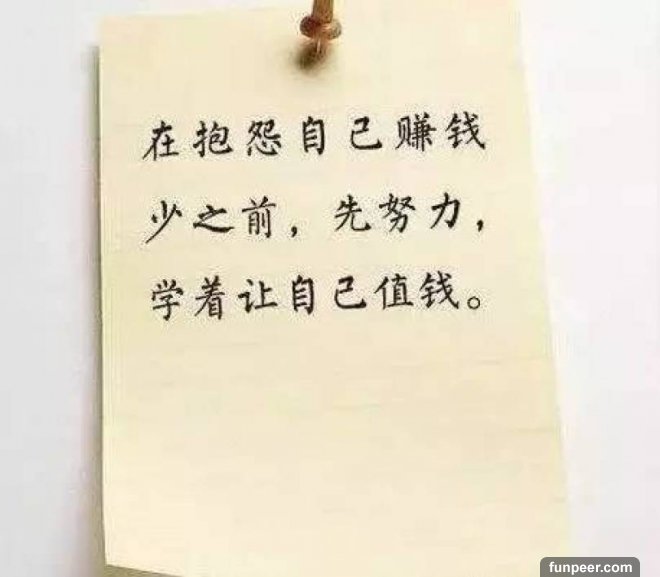 在抱怨自己赚钱
少之前，先努力，
学着让自己值钱。
funpeer.com